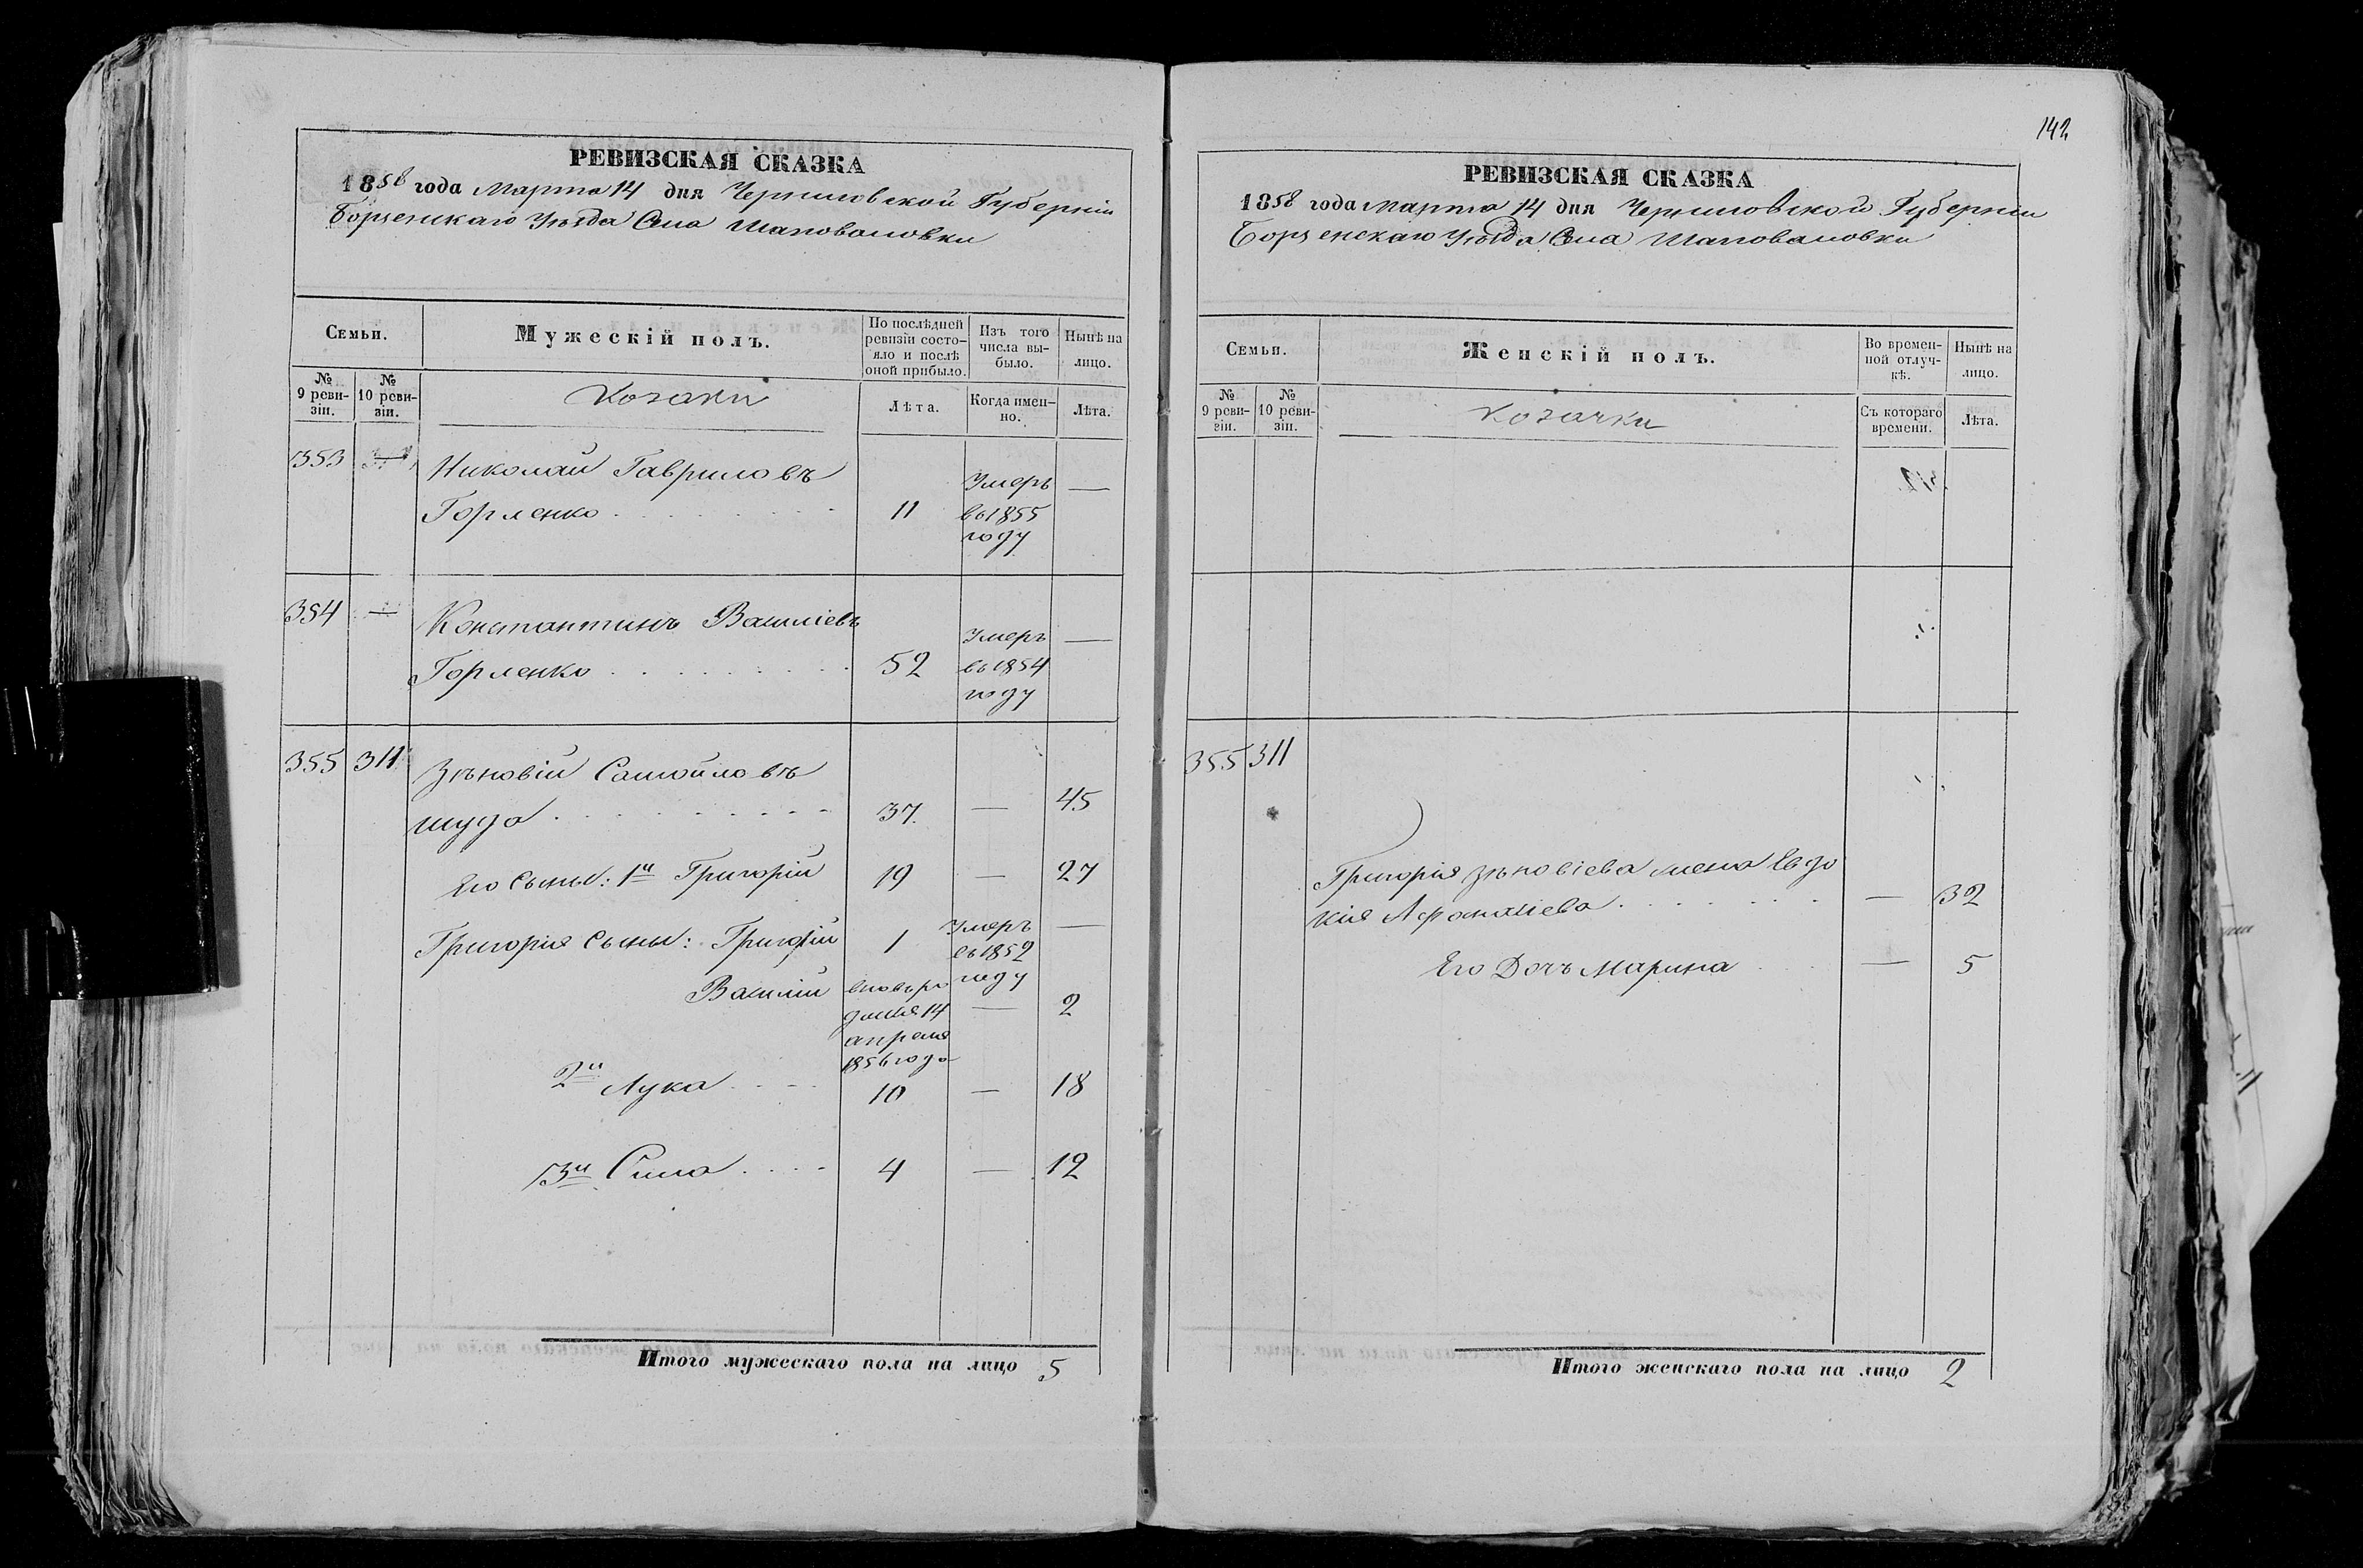 РЕВИЗСКАЯ СКАЗКА
1858 года Марта 14 дня Черниговской Губерніи
Борзенскаго Уѣзда Села Шаповаловки
Семьи.
Мужескій полъ.
По послѣдней ревизіи состояло и послѣ оной прибыло.
Изъ того числа выбыло.
Нынѣ на лицо.
№ 9 ревизіи.
№ 10 ревизіи.
Козаки
Лѣта.
Когда именно.
Лѣта.
353 Николай Гавриловъ
Горленко 11 Умеръ въ 1855 году —
354 — Константинъ Василіевъ
Горленко 52 Умеръ въ 1854 году —
355 311 Зѣновій Самойловъ
Шуда 37 — 45
Его Сыны: 1й Григорій 19 — 27
Григорія Сыны: Григорій 1 Умеръ въ 1852 году —
Василій вновь ро
14 апреля 1856 года — 2
2й Лука 10 — 18
3й Сила 4 — 12
Итого мужескаго пола на лицо 5
142
РЕВИЗСКАЯ СКАЗКА
1858 года Марта 14 дня Черниговской Губерніи
Борзенскаго Уѣзда Села Шаповаловки
Семьи.
Женскій полъ.
Во временной отлучкѣ.
Нынѣ на лицо.
№ 9 ревизіи.
№ 10 ревизіи.
Козачки
Съ котораго времени.
Лѣта.
355 311
Григорія Зѣновіева жена Евдо
кія Афанасіева — 32
Его Дочь Марина — 5
Итого женскаго пола на лицо 2